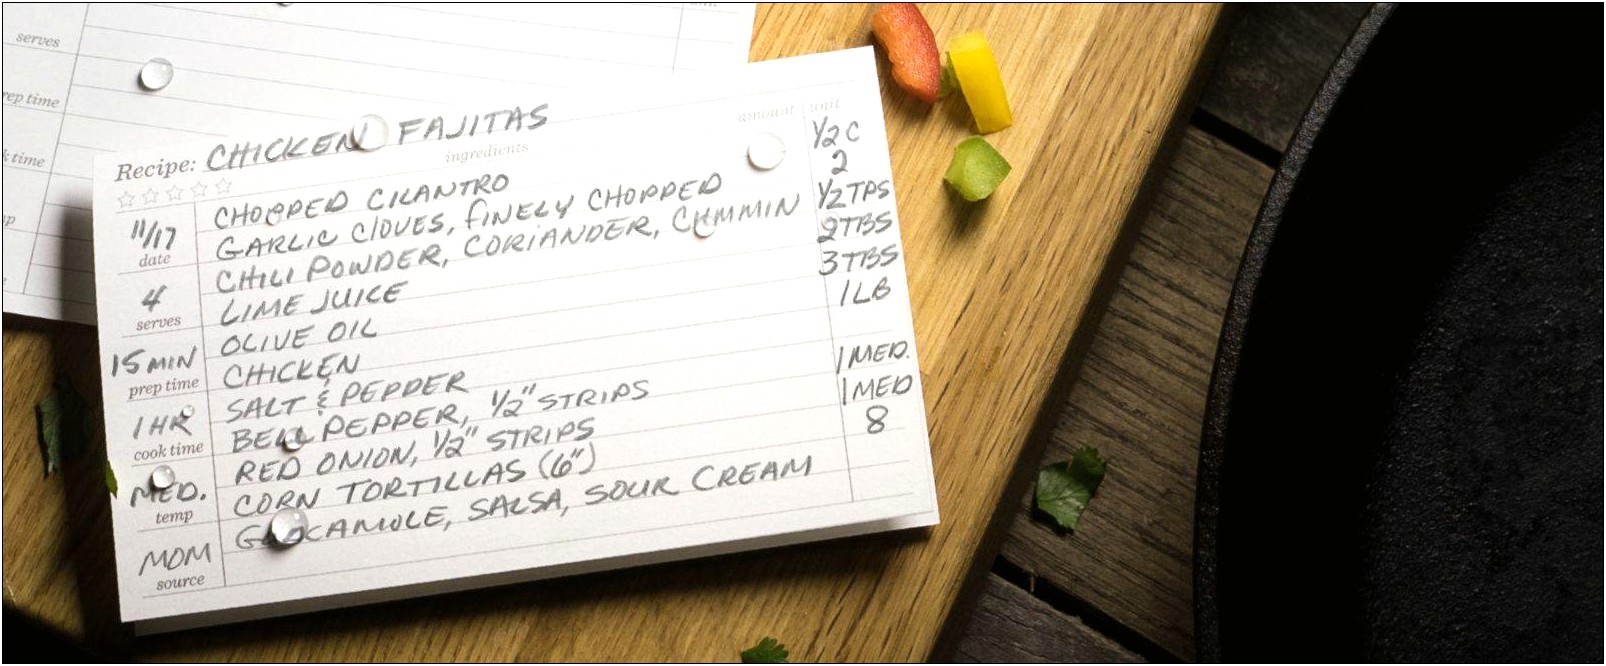 serves
rep time
k time
Recipe: CHICKEN FAJITAS
ingredients amount unit
CHOPPED CILANTRO 1/2 C
GARLIC CLOVES, FINELY CHOPPED 2
CHILI POWDER, CORIANDER, CUMMIN 1/2 TPS
LIME JUICE 2 TBS
OLIVE OIL 3 TBS
CHICKEN 1 LB
SALT & PEPPER
BELL PEPPER, 1/2" STRIPS 1 MED.
RED ONION, 1/2" STRIPS 1 MED
CORN TORTILLAS (6") 8
GUOCAMOLE, SALSA, SOUR CREAM
11/17
date
4
serves
15 MIN
prep time
1 HR
cook time
MED.
temp
MOM
source